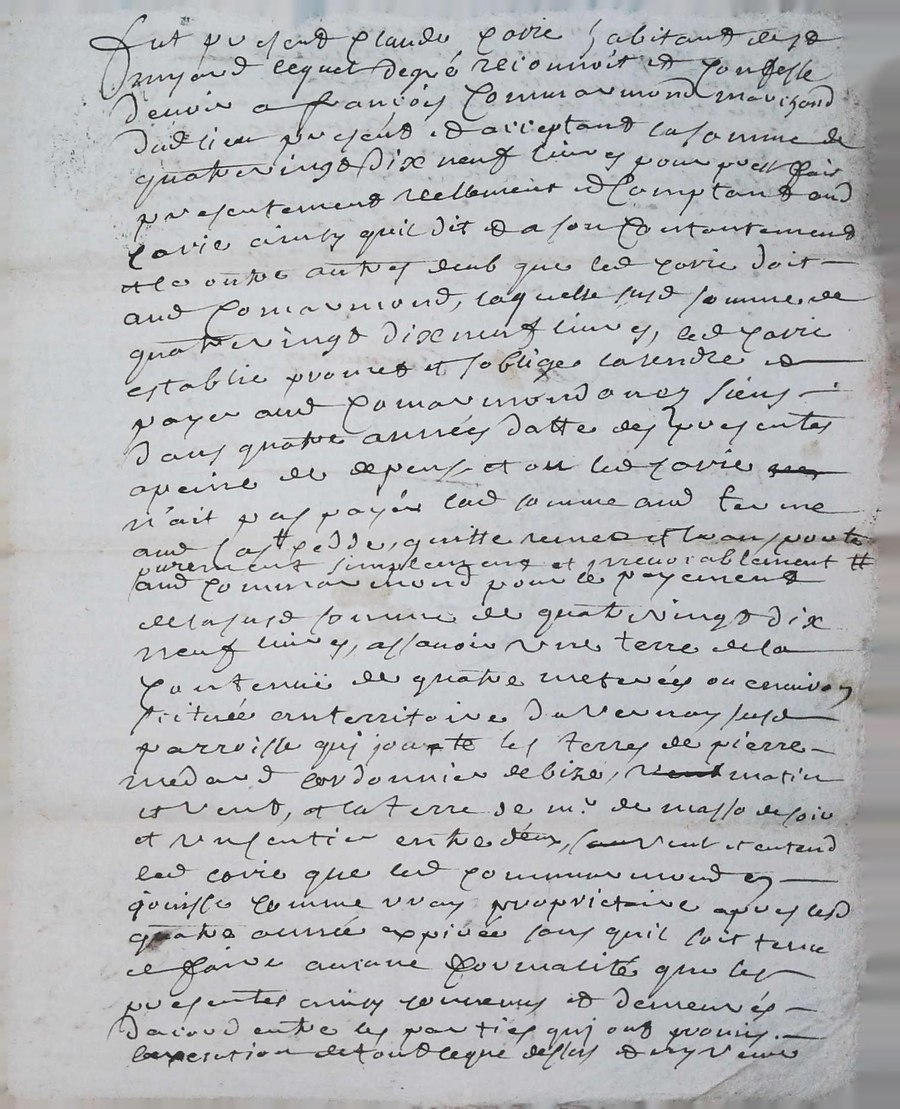 fut present Claude Corie habitant de st
lequel degré reconnoit et Confesse
devoir a françois Commarmond marchand
dud lieu present et acceptant lasomme de
quatrevingt dix neuf livres pour prest fait
presentement reellement et Comptant aud
Corie ainsy quil dit et a son Contentement
et le outre autres deub que led Corie doit
aud Comarmond, laquelle susd somme de
quatrevingt dix neuf livres, led Corie
establie promet et soblige larendre et
payer aud Comarmond ou es siens
dans quatre années datte des presentes
apeine de depens et ou led Corie
n'ait pas payér lad somme aud terme
cede, quitte remet et transporte
purement simplement et irrevocablement #
aud Commarmond pour le payement
delasusd somme de quatrevingt dix
neuf livres, assavoir une terre dela
Contenuë de quatre meterées ou environ
scituée enterritoire du Vernay susd
parroisse qui jouxte les terres de pierre
medard Cordonnier de bize, matin
et vent, et laterre de mr. de masso de soir
et un sentier entre deux, veut et entend
led corie que led Commarmond en
jouisse Comme vray proprietaire apres lesd
quatre année expirée sans quil soit tenu
de faire aucune formalité que les
presentes ainsy convenus et demeurés
dacord entre les parties qui ont promis
lexecution de tout ceque dessus et ny venir